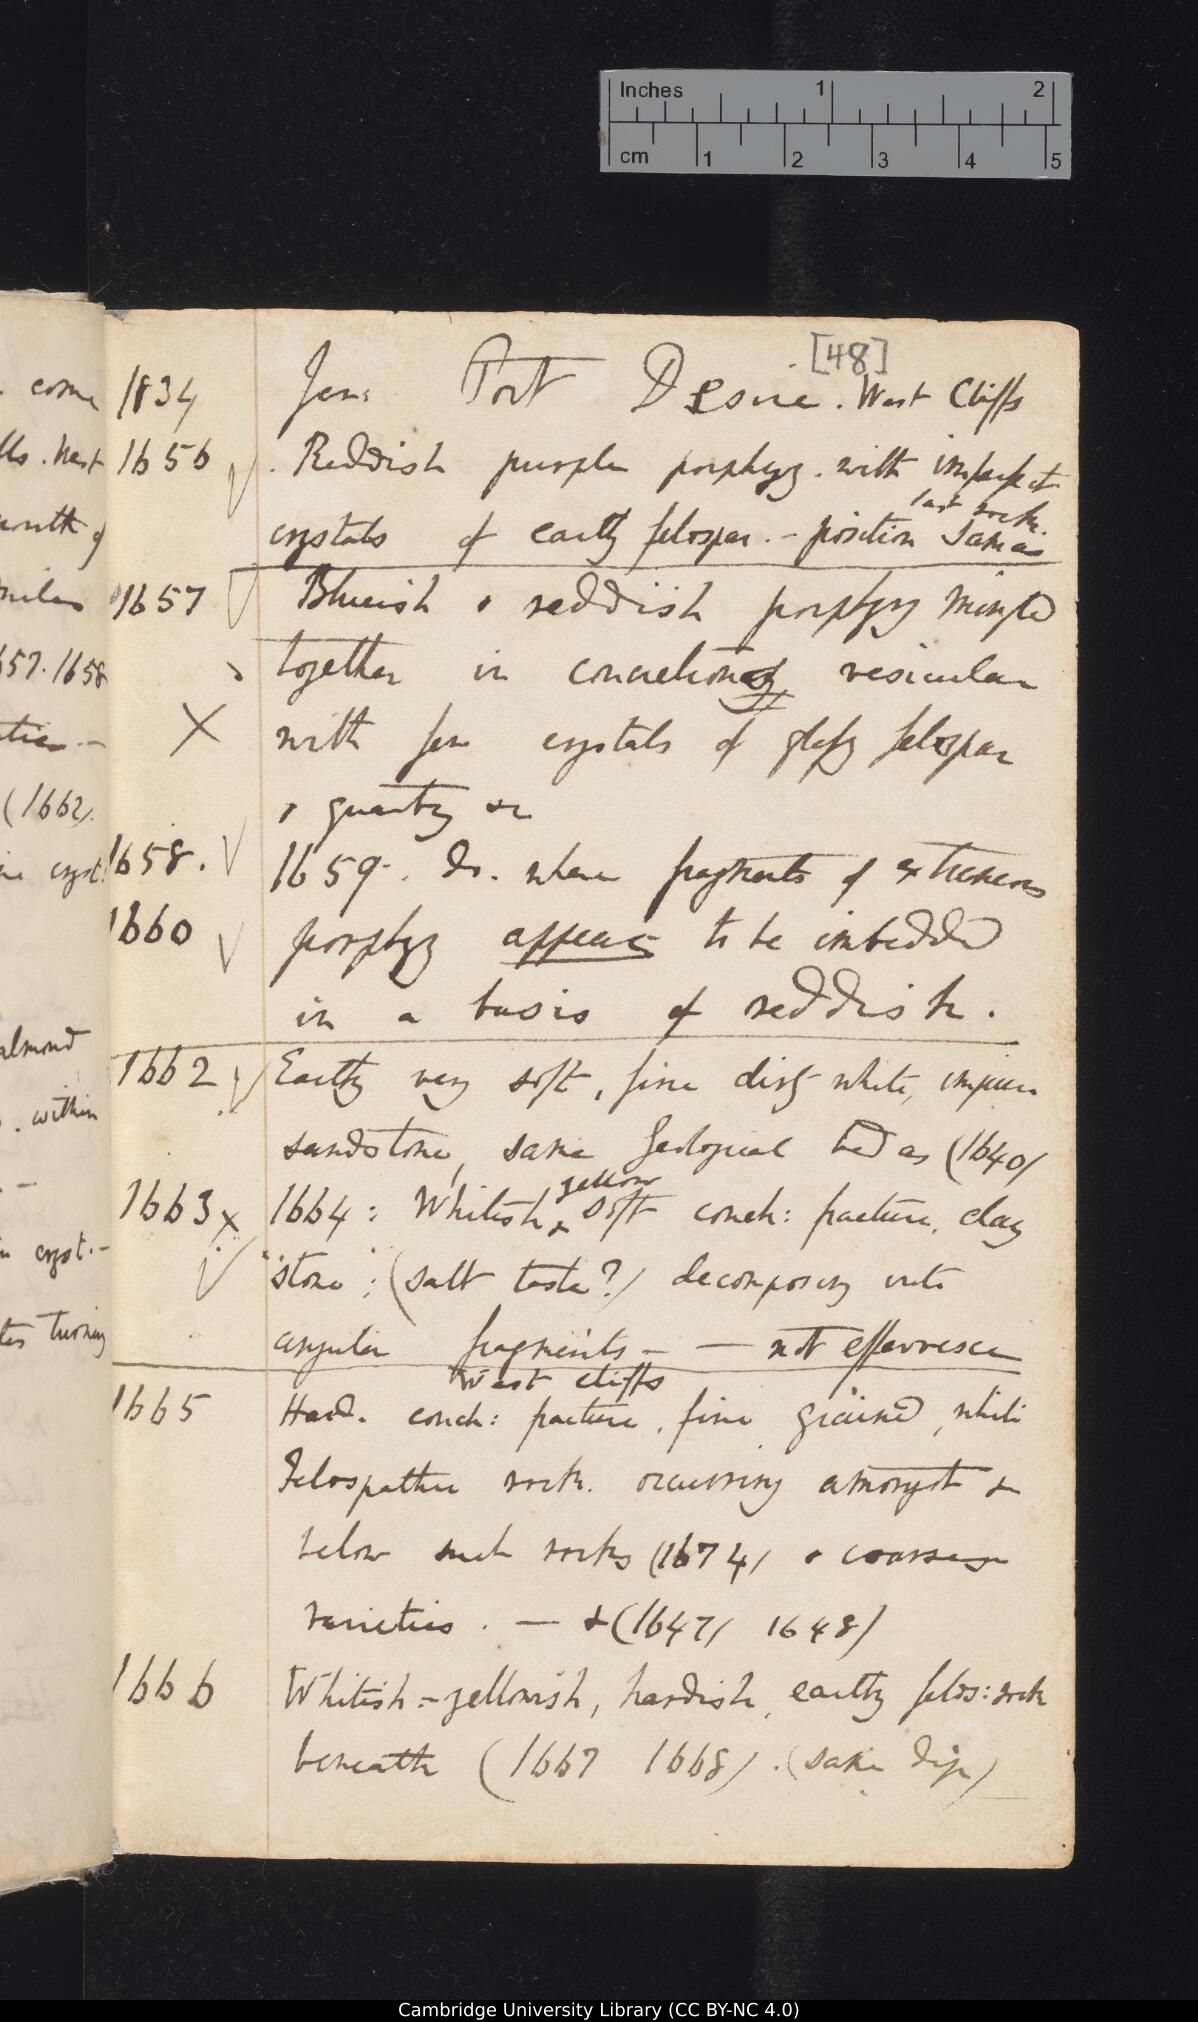 Inches 1 2
cm 1 2 3 4 5
[48]
1834 Jan: Port Desire. West Cliffs
1656 . Reddish purple porphyry. with imperfect
last rock.
crystals of earthy felospar. - position same as
1657 Blueish & reddish porphyry mingled
together in concretions vesicular
X with few crystals of glassy felospar
& quartz &c
1658. 1659. Do. where fragments of extraneous
1660 porphyry appears to be imbedded
in a basis of reddish.
1662 Earthy very soft, fine dirty white, impure
sandstone, same Geological bed as (1640)
yellow
1663 x 1664: Whitish & soft conch: fracture. clay
"stone": (salt taste?) decomposing into
angular fragments - — not effervesce
West Cliffs
1665 Hard. conch: fracture, fine grained, white
Felospathic rock. occurring amongst &
below such rocks (1674) & coarser
varieties. — & (1647) 1648)
1666 Whitish-yellowish, hardish, earthy felos: rock
beneath (1667 1668). (same dip)
come
. West
south of
miles
657. 1658
(1662).
cryst:
almond
. within
cryst. -
turning
Cambridge University Library (CC BY-NC 4.0)